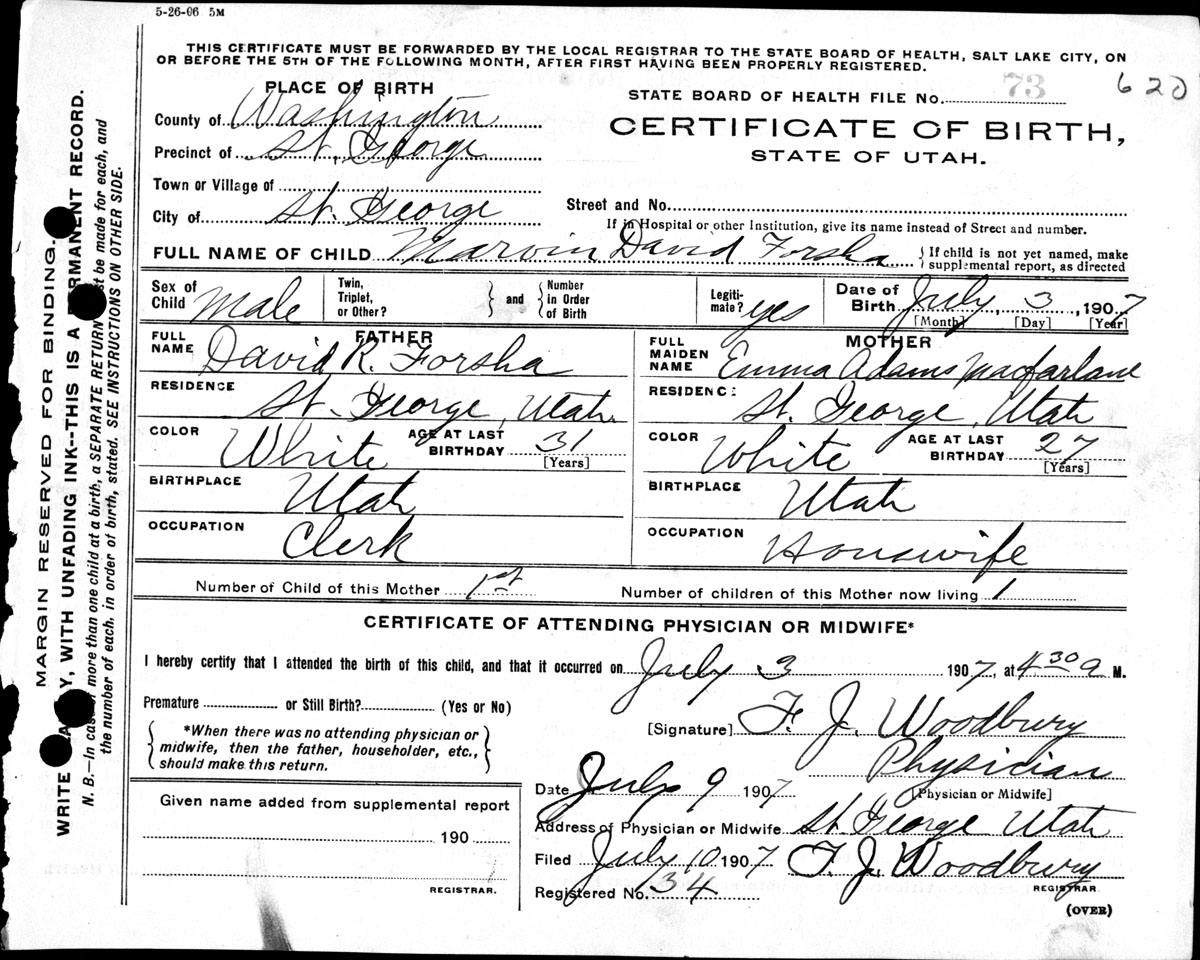 5-26-06 5M
THIS CERTIFICATE MUST BE FORWARDED BY THE LOCAL REGISTRAR TO THE STATE BOARD OF HEALTH, SALT LAKE CITY, ON
OR BEFORE THE 5TH OF THE FOLLOWING MONTH, AFTER FIRST HAVING BEEN PROPERLY REGISTERED.
PLACE OF BIRTH
STATE BOARD OF HEALTH FILE No. 73 620
County of Washington
CERTIFICATE OF BIRTH,
STATE OF UTAH.
Precinct of St. George
Town or Village of
City of St. George
Street and No.
If in Hospital or other Institution, give its name instead of Street and number.
FULL NAME OF CHILD Marvin David Forsha { If child is not yet named, make
supplemental report, as directed
Sex of Child Male
Twin, Triplet, or Other? } and { Number in Order of Birth
Legiti-mate? yes
Date of Birth July 3, 1907
[Month] [Day] [Year]
FATHER
FULL NAME David R. Forsha
RESIDENCE St. George, Utah.
COLOR White AGE AT LAST BIRTHDAY 31
[Years]
BIRTHPLACE Utah
OCCUPATION Clerk
MOTHER
FULL MAIDEN NAME Emma Adams Macfarlane
RESIDENCE St. George, Utah
COLOR White AGE AT LAST BIRTHDAY 27
[Years]
BIRTHPLACE Utah
OCCUPATION Housewife
Number of Child of this Mother 1st Number of children of this Mother now living 1
CERTIFICATE OF ATTENDING PHYSICIAN OR MIDWIFE*
I hereby certify that I attended the birth of this child, and that it occurred on July 3 1907, at 4 30 a M.
Premature or Still Birth? (Yes or No)
*When there was no attending physician or
midwife, then the father, householder, etc.,
should make this return.
[Signature] F. J. Woodbury
Physician
[Physician or Midwife]
Date July 9 1907
Given name added from supplemental report
190
REGISTRAR.
Address of Physician or Midwife St George Utah
Filed July 10 1907 F. J. Woodbury
REGISTRAR
Registered No. 34
(OVER)
MARGIN RESERVED FOR BINDING.
WRITE PLAINLY, WITH UNFADING INK--THIS IS A PERMANENT RECORD.
N. B.—In case of more than one child at a birth, a SEPARATE RETURN must be made for each, and
the number of each, in order of birth, stated. SEE INSTRUCTIONS ON OTHER SIDE.